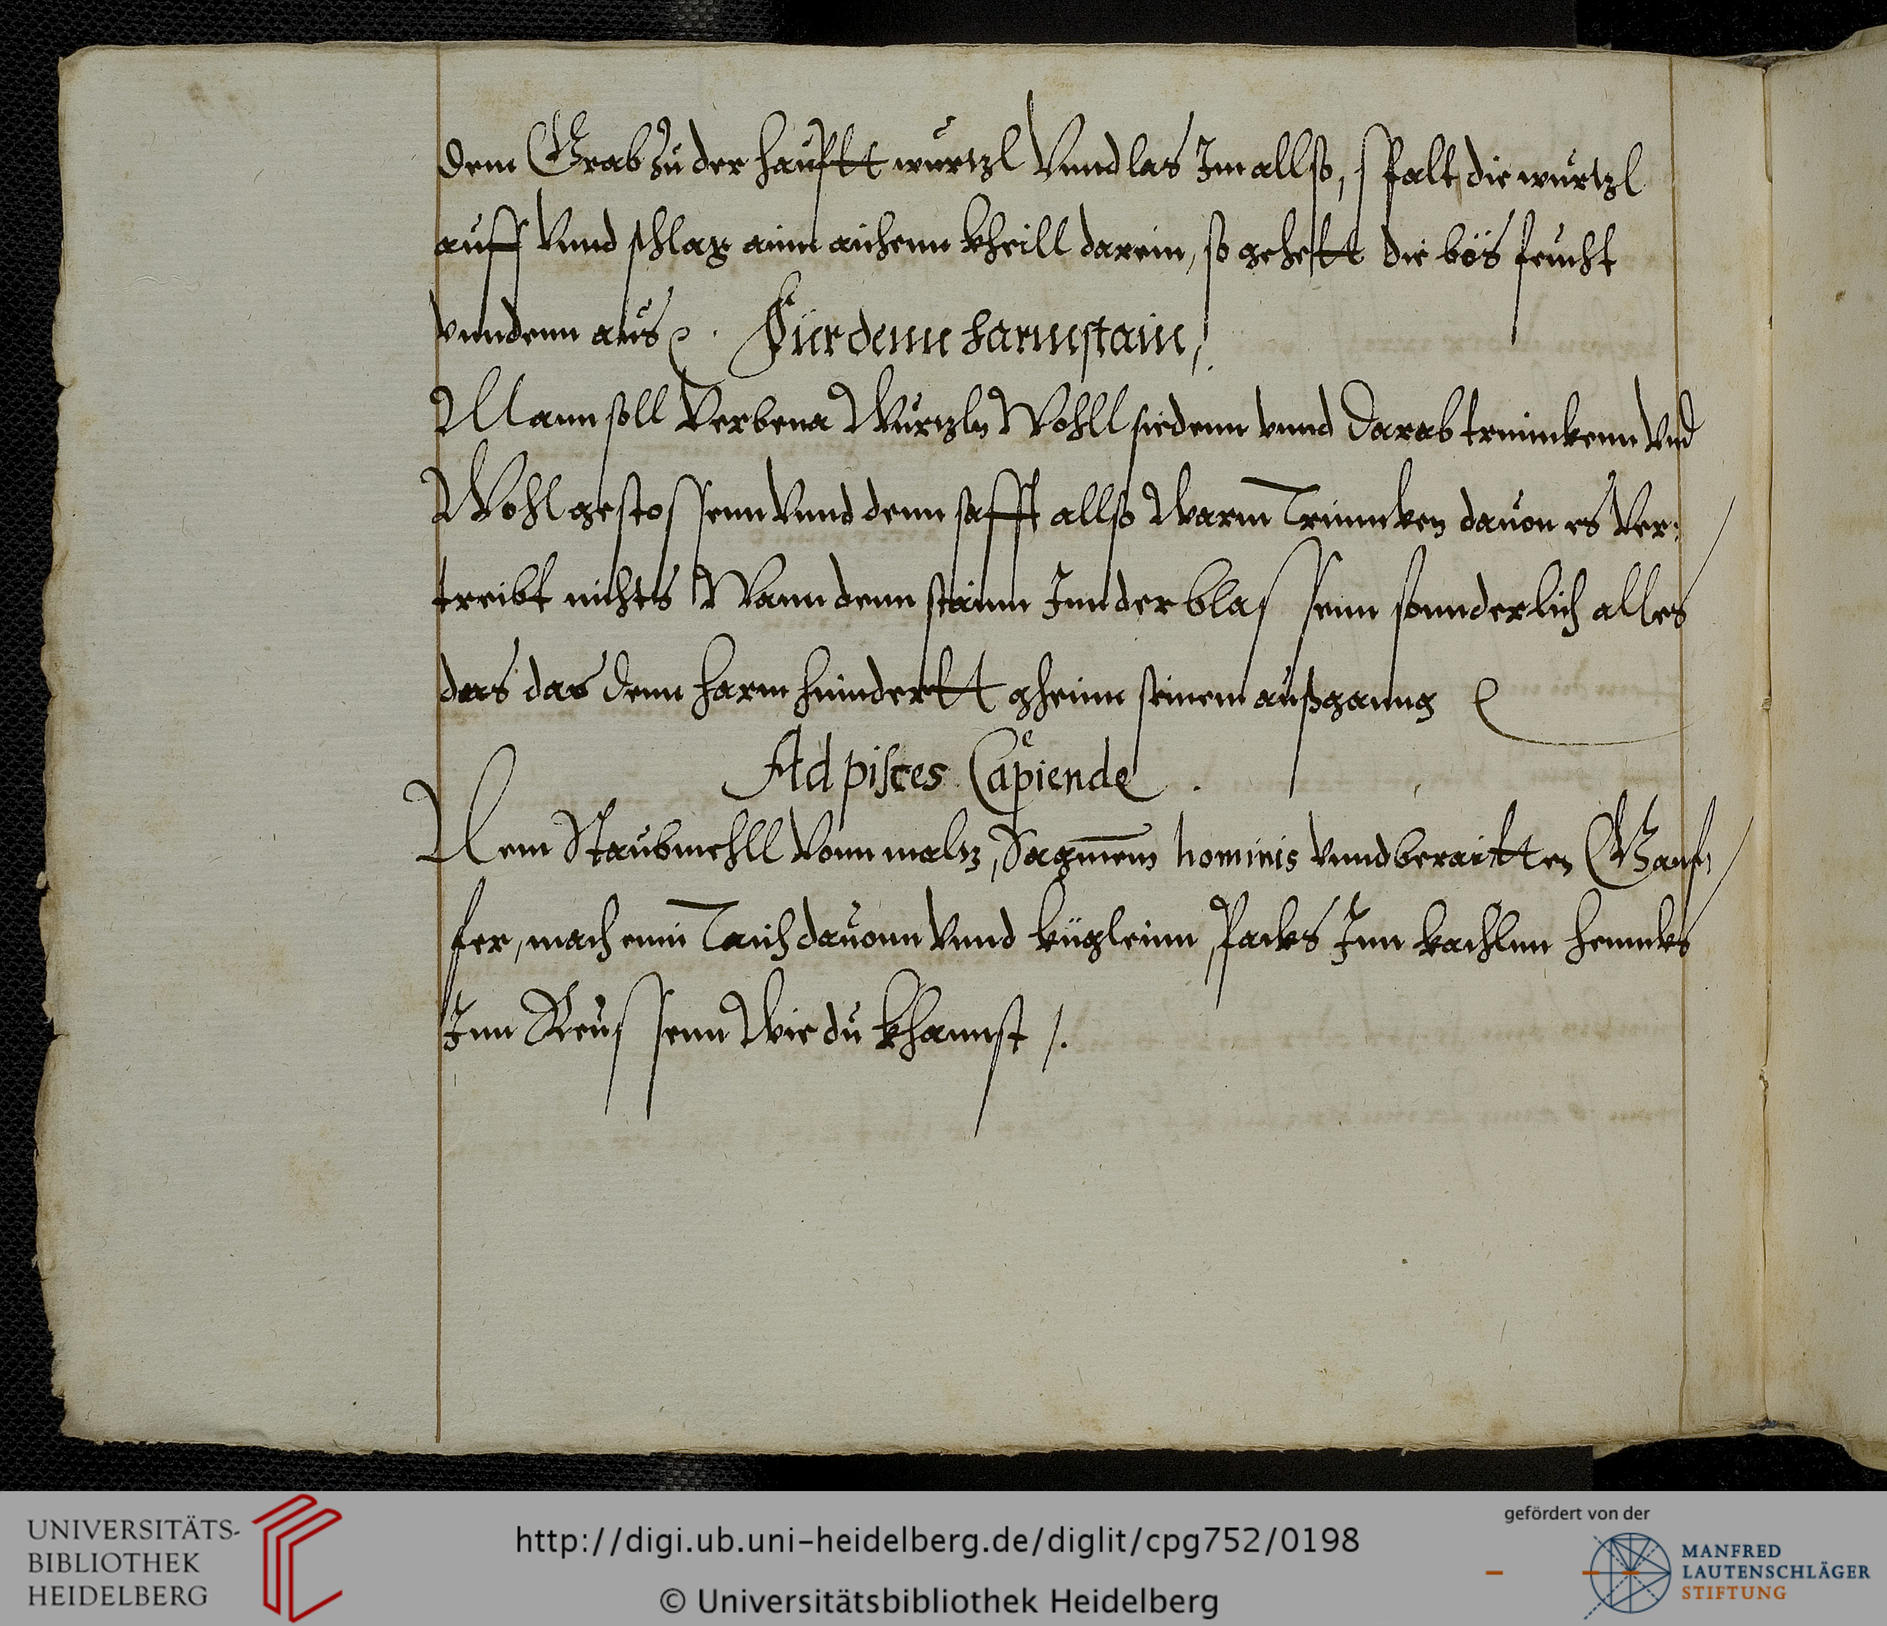 dem Grab zu der haufftt wurtzl Vnnd las Im allso, spalt die wurtzl
auff Vnnd schlag ainn aichenn kheill darein, so gehettt die bös feucht
vnndenn aus. Für denn harmstain,
Mann soll Verbena Wurtzln Wohll siedenn vnnd darab trinnkenn Vnd
Wohl gestossenn Vnnd denn safft allso Warm Trinncken dauon es Ver-
treibt nichts Wann denn stainn Inn der blassenn sonnderlich alles
das das denn harm hinndertt seinem außganng
Ad pisces Capiende.
Nem Staubmehll Vonn maltz, hominis vnnd beraitten Gamf-
fer, mach ein Taich dauonn Vnnd kügleinn, packs Inn kachlnn hennks
Inn Reussenn Wie du khannst /.
UNIVERSITÄTS-
BIBLIOTHEK
HEIDELBERG
http://digi.ub.uni-heidelberg.de/diglit/cpg752/0198
© Universitätsbibliothek Heidelberg
gefördert von der
MANFRED
LAUTENSCHLÄGER
STIFTUNG